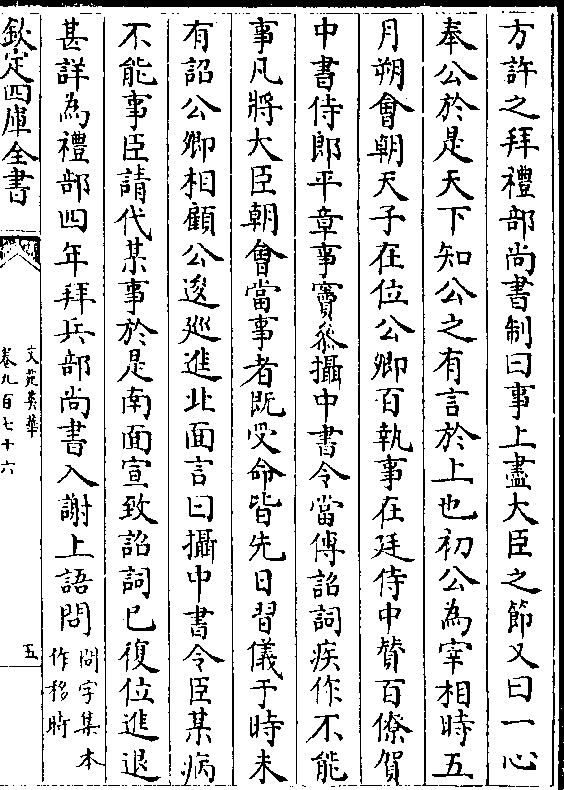 方許之拜禮部尚書制曰事上盡大臣之節又曰一心
奉公於是天下知公之有言於上也初公為宰相時五
月朔會朝天子在位公卿百執事在廷侍中贊百僚賀
中書侍郎平章事竇叅攝中書令當傳詔詞疾作不能
事凡將大臣朝會當事者既受命皆先日習儀于時未
有詔公卿相顧公逡廵進北面言曰攝中書令臣某病
不能事臣請代某事於是南面宣致詔詞已復位進退
甚詳為禮部四年拜兵部尚書入謝上語問問字集本作移時
欽定四庫全書
文苑英華
卷九百七十六
五